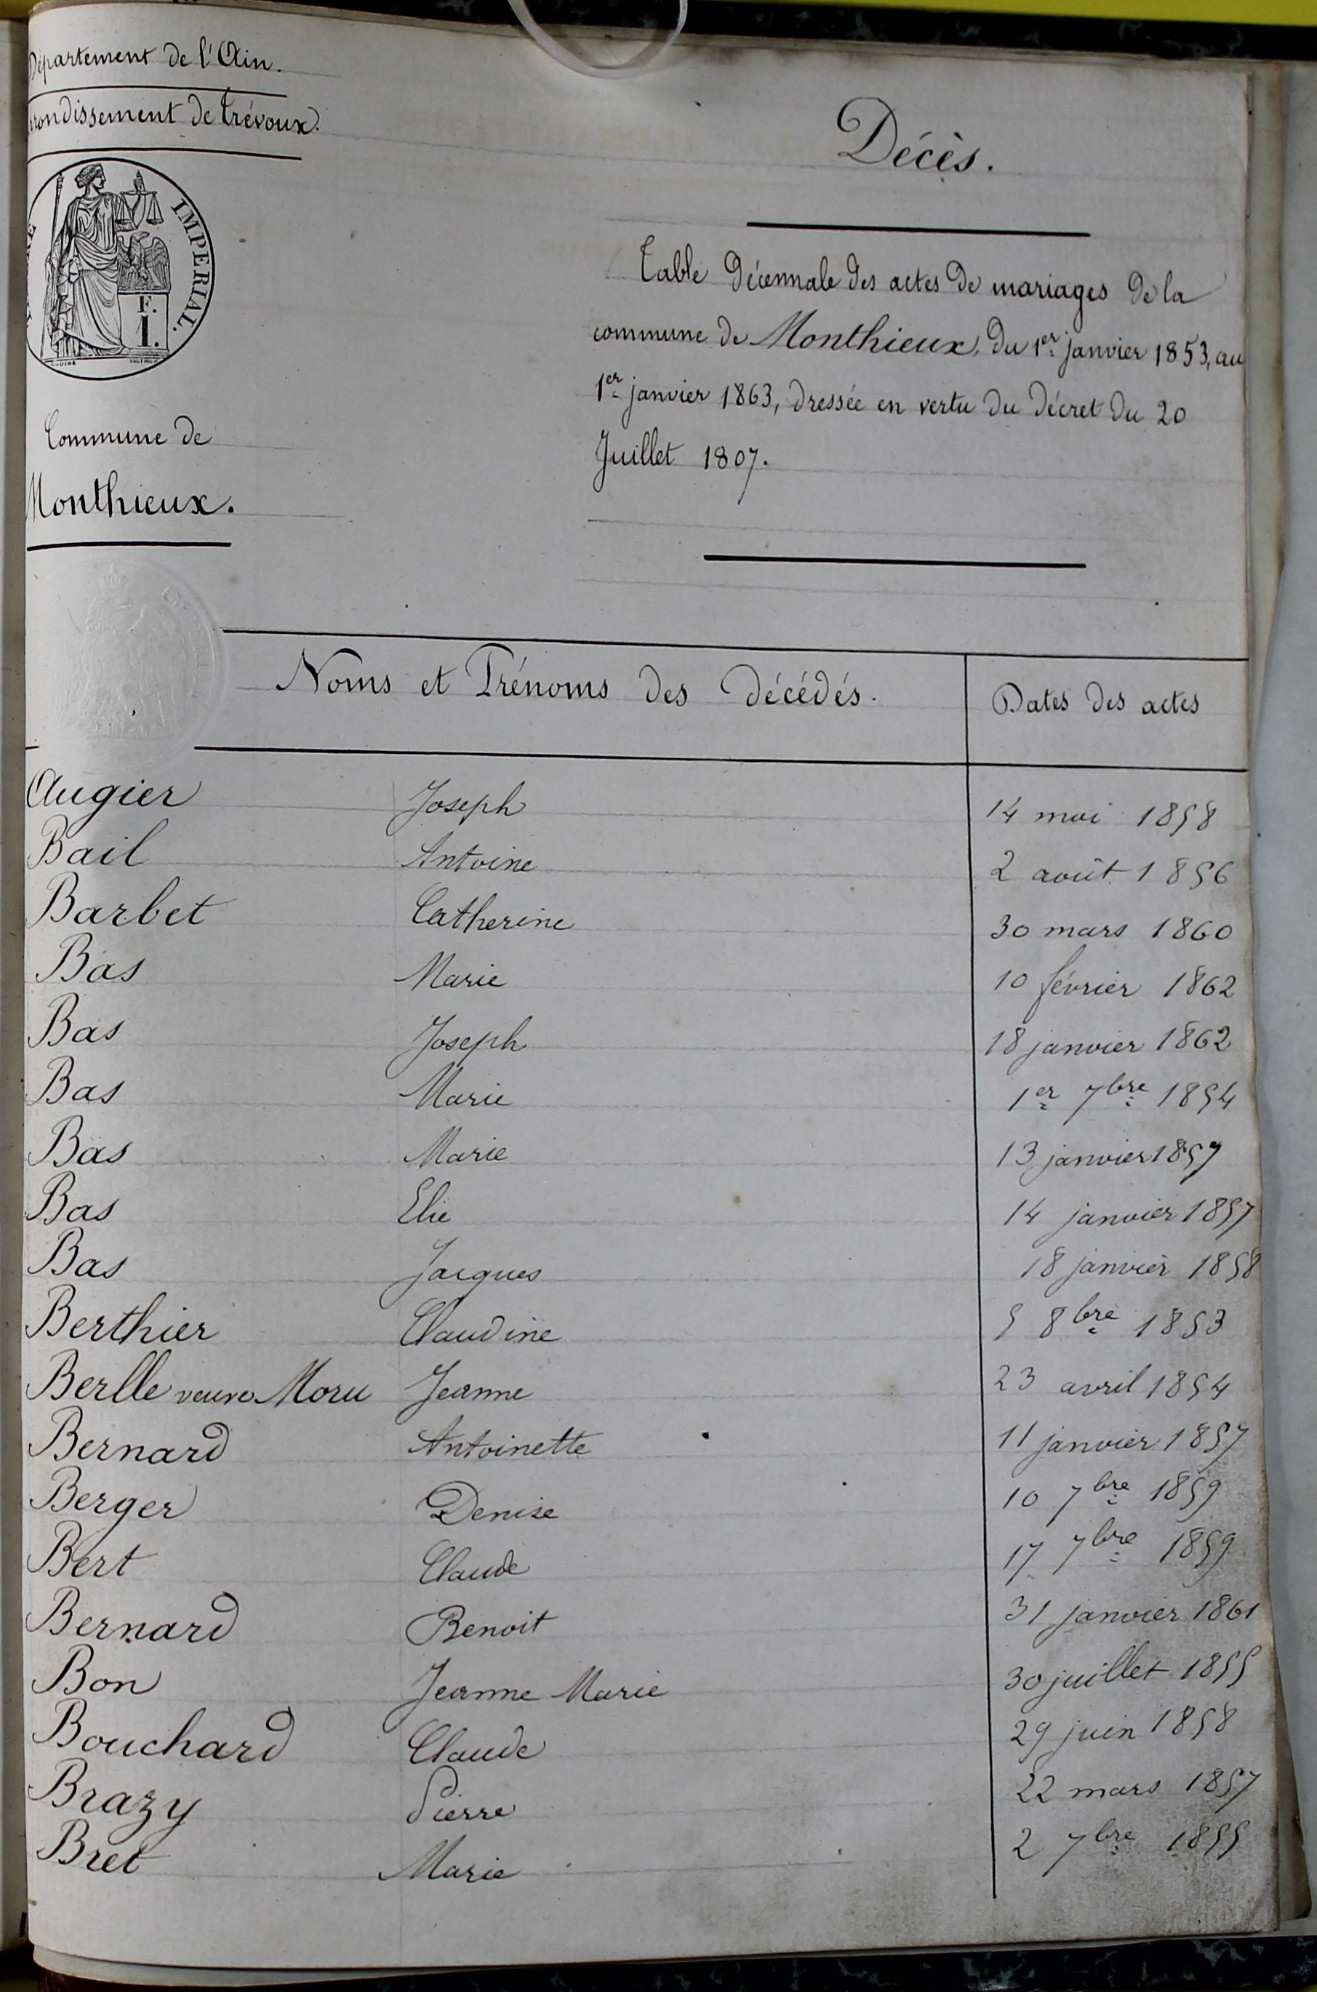 Département de l'Ain.
Arrondissement de Trévoux.
IMPERIAL.
F.
I.
Commune de
Monthieux.
Décès.
Table décennale des actes de mariages de la
commune de Monthieux, du 1er janvier 1853, au
1er janvier 1863, dressée en vertu du décret du 20
Juillet 1807.
Noms et Prénoms des décédés. Dates des actes
Augier Joseph 14 mai 1858
Bail Antoine 2 août 1856
Barbet Catherine 30 mars 1860
Bas Marie 10 février 1862
Bas Joseph 18 janvier 1862
Bas Marie 1er 7bre 1854
Bas Marie 13 janvier 1857
Bas Elie 14 janvier 1857
Bas Jacques 18 janvier 1858
Berthier Claudine 5 8bre 1853
Berlle veuve Moru Jeanne 23 avril 1854
Bernard Antoinette 11 janvier 1857
Berger Denise 10 7bre 1859
Bert Claude 17 7bre 1859
Bernard Benoit 31 janvier 1861
Bon Jeanne Marie 30 juillet 1855
Bouchard Claude 29 juin 1858
Brazy Pierre 22 mars 1857
Bret Marie 2 7bre 1855